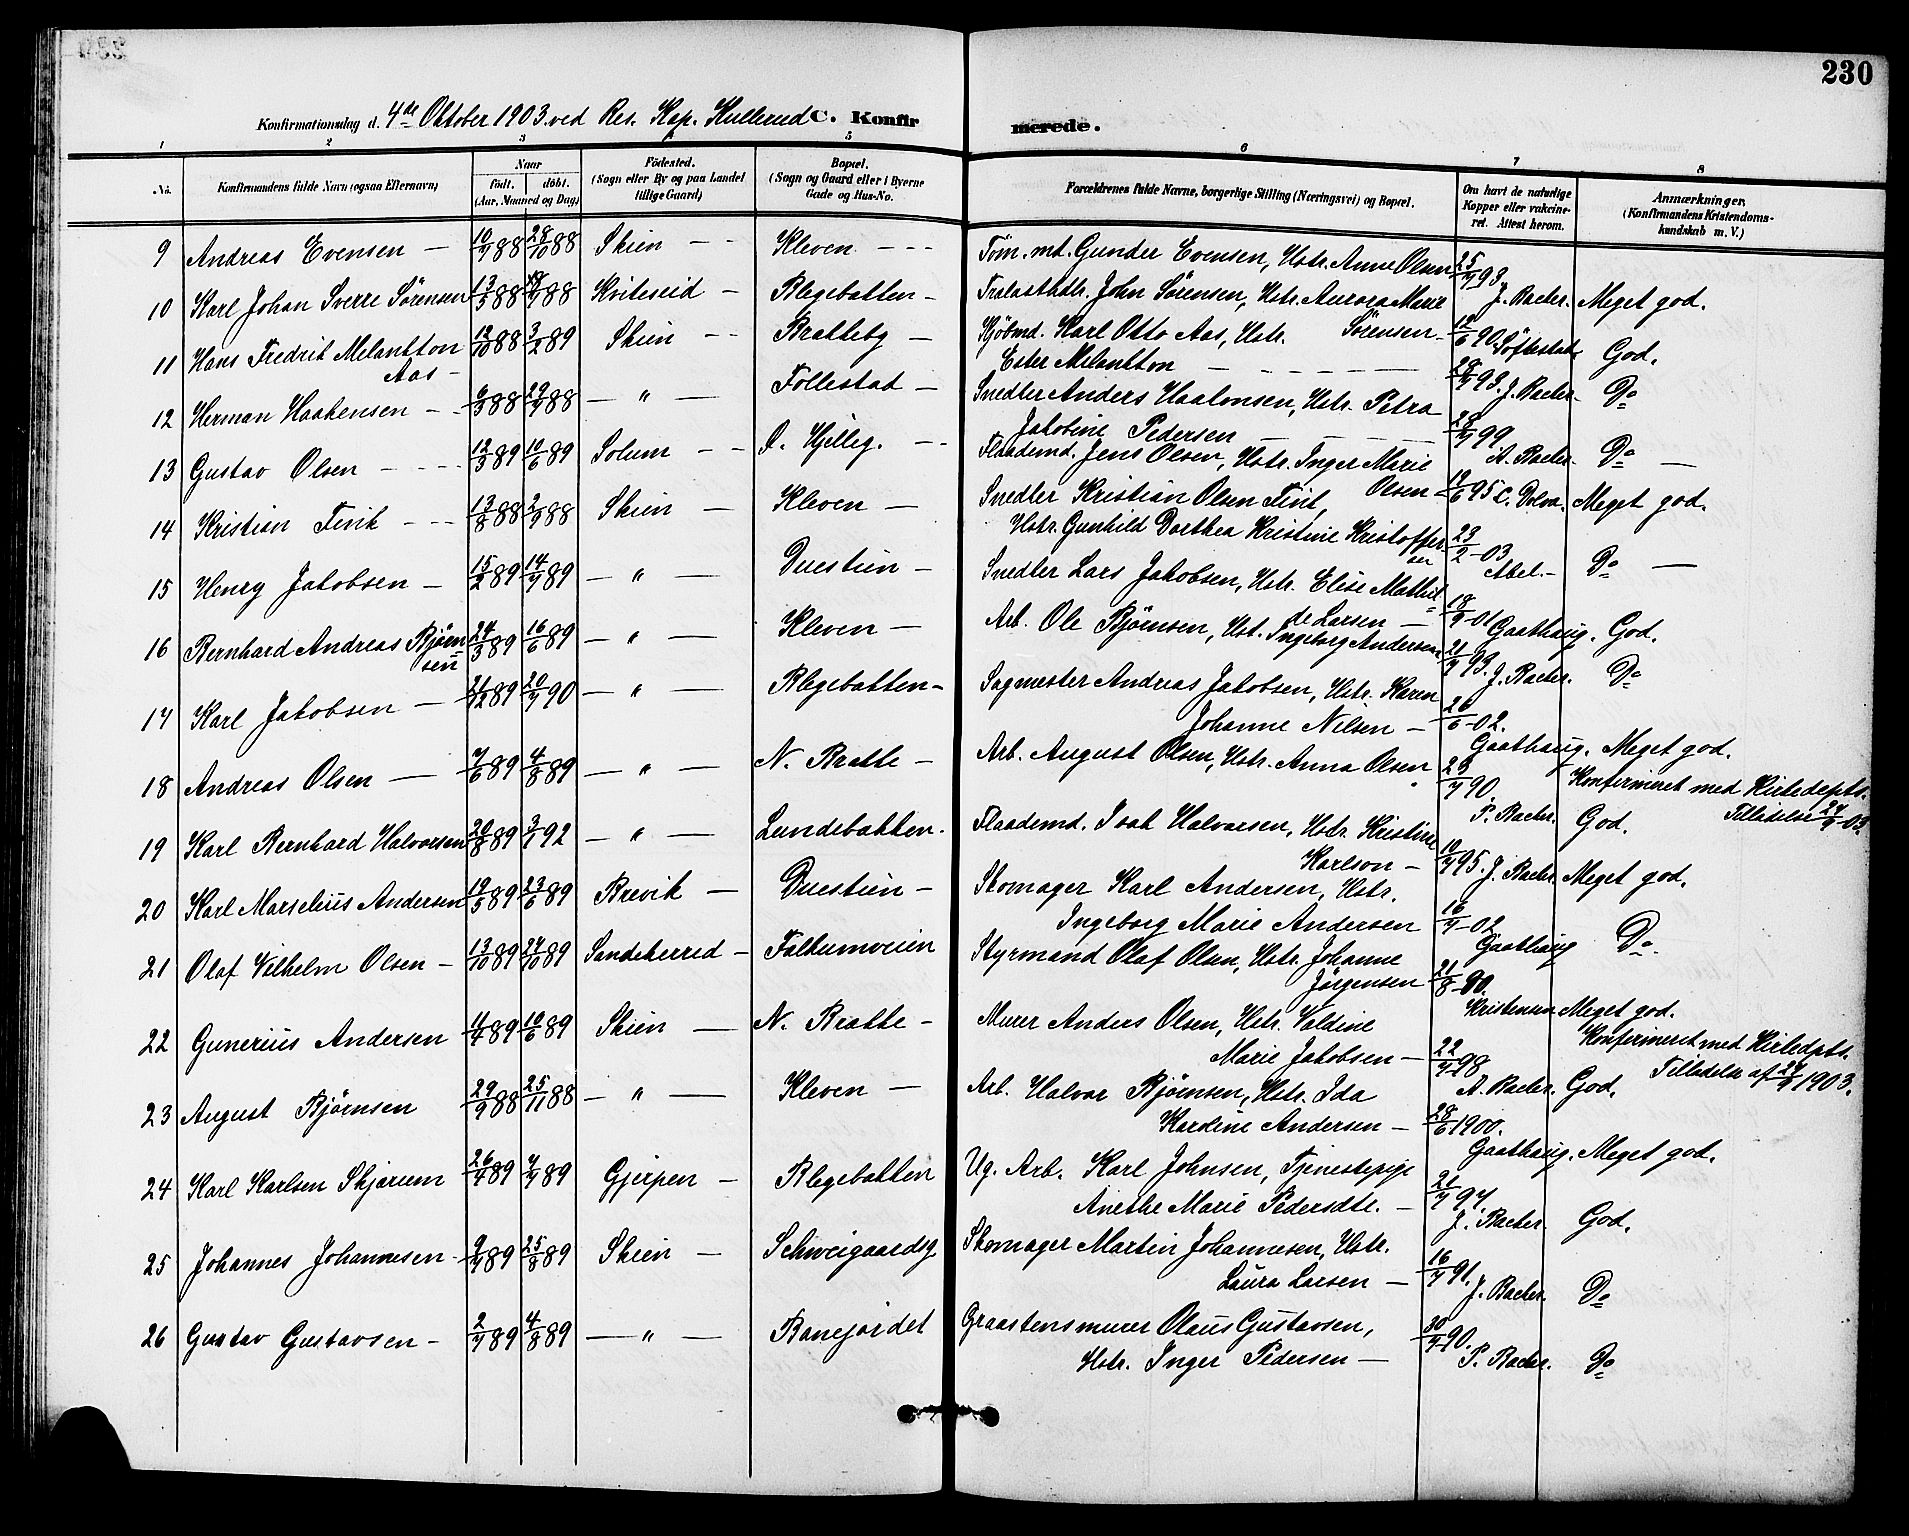 230
Konfirmationsdag d. 4de Oktober 1903 ved Res. Kap. Hullerud C. Konfirmerede.
1 2 3 5 6 7 8
No. Konfirmandens fulde Navn (ogsaa Efternavn) Naar født. døbt. (Aar, Maaned og Dag) Fødested. (Sogn eller By og paa Landet tillige Gaard) Bopæl. (Sogn og Gaard eller i Byerne Gade og Hus-No. Forældrenes fulde Navne, borgerlige Stilling (Næringsvei) og Bopæl. Om havt de naturlige Kopper eller vakcineret. Attest herom. Anmærkninger. (Konfirmandens Kristendomskundskab m. V.)
9 Andreas Evensen — 10/9 88 28/10 88 Skien - - Kleven - - - Tøm. md. Gunder Evensen, Hstr. Anne Olsen 25/7 93
J. Backer. Meget god.
10 Karl Johan Sverre Sørensen 13/5 88 88 Kviteseid - Blegebakken - Trælasthdlr. John Sørensen, Hstr. Aurora Marie
Sørensen - 12/6 90 Løftestad God.
11 Hans Fredrik Melantton 12/10 88 3/2 89 Skien - - Bratteby - Kjøbmd. Karl Otto Aas, Hstr.
Aas - Ester Melantton - - - - - 28/7 93. J. Backer. Do
12 Herman Haakensen - - 6/3 88 29/7 88 — " — Follestad - Snedker Anders Haakonsen, Hstr. Petra
Jakobine Pedersen - - - - 28/7 99 A. Backer. Do —
13 Gustav Olsen - - - - 12/3 89 10/6 89 Solum - - S. Hjelleg. - - Flaademd. Jens Olsen, Hstr. Inger Marie
Olsen - 12/6 95 C. Dolva. Meget god.
14 Kristian Fink - - - 13/8 88 2/9 88 Skien - Kleven - Snedker Kristian Olsen Fink,
Hstr. Gunhild Dorthea Kristine Kristoffersen 23/2 - 03 Abel. - Do —
15 Henry Jakobsen - 15/2 89 14/7 89 — " — Duestien - Snedker Lars Jakobsen, Hstr. Elise Mathilde Larsen - 18/9 - 01 Gaathaug. God.
16 Bernhard Andreas Bjørnsen 24/3 89 16/6 89 — " — Kleven — Arb. Ole Bjørnsen, Hst. Ingeborg Andersen 21/7 93. J. Backer. Do
17 Karl Jakobsen - 21/12 89 20/7 90 — " — Blegebakken - Sagmester Andreas Jakobsen, Hstr. Karen
Johanne Nilsen - 26/6 - 02. Gaathaug. Meget god.
18 Andreas Olsen — 7/6 89 4/8 89 — " — N. Bratte - Arb. August Olsen, Hstr. Anna Olsen 23/7 90 P. Backer. God.
Konfirmeret med Kirkedepts.
Tilladelse 24/9 - 03
19 Karl Bernhard Halvorsen 20/8 89 3/7 92 — " — Lundebakken. Flaademd. Isak Halvorsen, Hstr. Kristine
Karlson - 10/7 95. J. Backer Meget god.
20 Karl Marselius Andersen 19/5 89 23/6 89 Brevik — Duestien - Skomager Karl Andersen, Hstr.
Ingeborg Marie Andersen 16/7 - 02 Gaathaug Do.
21 Olaf Vilhelm Olsen - 13/10 89 27/10 89 Sandeherred - Falkumveien Styrmand Olaf Olsen, Hstr. Johanne
Jørgensen 21/8 - 90. Kristensen Meget god.
22 Gunerius Andersen 11/4 89 10/6 89 Skien — N. Bratte - Murer Anders Olsen, Hstr. Valdine
Marie Jakobsen — 22/7 98 A. Backer. God.
Konfirmeret med Kirkedpts.
Tilladelse af 24/9 1903.
23 August Bjørnsen 29/9 88 25/11 88 — " — Kleven — Arb. Halvor Bjørnsen, Hstr. Ida
Karoline Andersen — 28/6 1900. Gaathaug. Meget god.
24 Karl Karlsen Skjærum 26/4 89 7/7 89 Gjerpen - Blegebakken Ug. Arb. Karl Johnsen, Tjenestepige
Anethe Marie Pedersdtr. - 21/7 97. J. Backer God.
25 Johannes Johannesen - 9/7 89 25/8 89 Skien - Schweigaardsg Skomager Martin Johannesen, Hstr.
Laura Larsen — 16/7 91. J. Backer. Do
26 Gustav Gustavsen - 2/7 89 4/8 89 — " — Banejordet Graastensmurer Olaus Gustavsen,
Hstr. Inger Pedersen — 30/7 90. P. Backer. Do